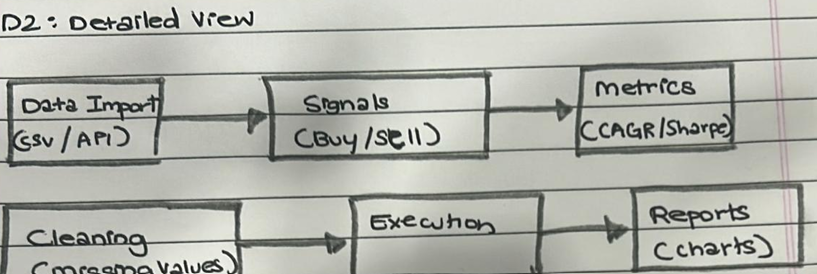 D2: Detailed View
Data Import
(CSV / API)
Signals
(Buy/Sell)
Metrics
(CAGR/Sharpe)
Cleaning
(missing values)
Execution
Reports
(charts)